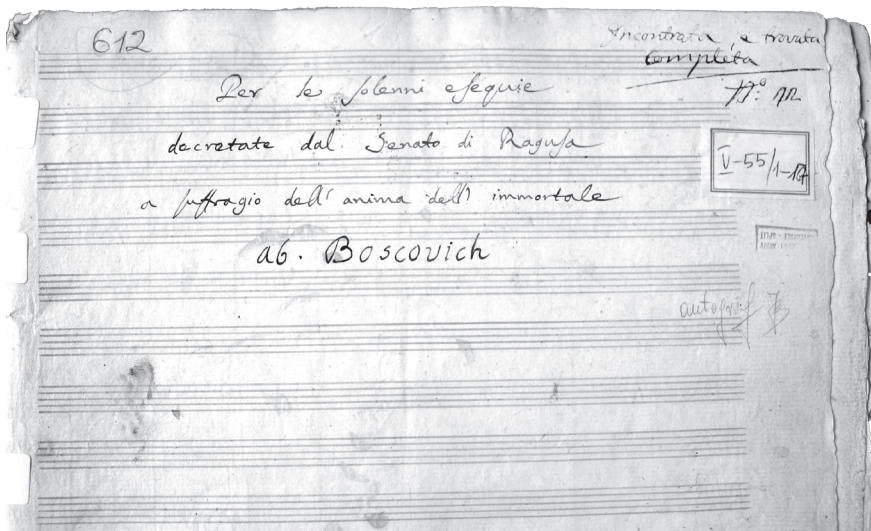 612
Incontrata e trovata
Completa
N.º 12
Per le solenni esequie
decretate dal Senato di Ragusa
V-55/1-17
a suffragio dell' anima dell' immortale
ab. Boscovich
autograf